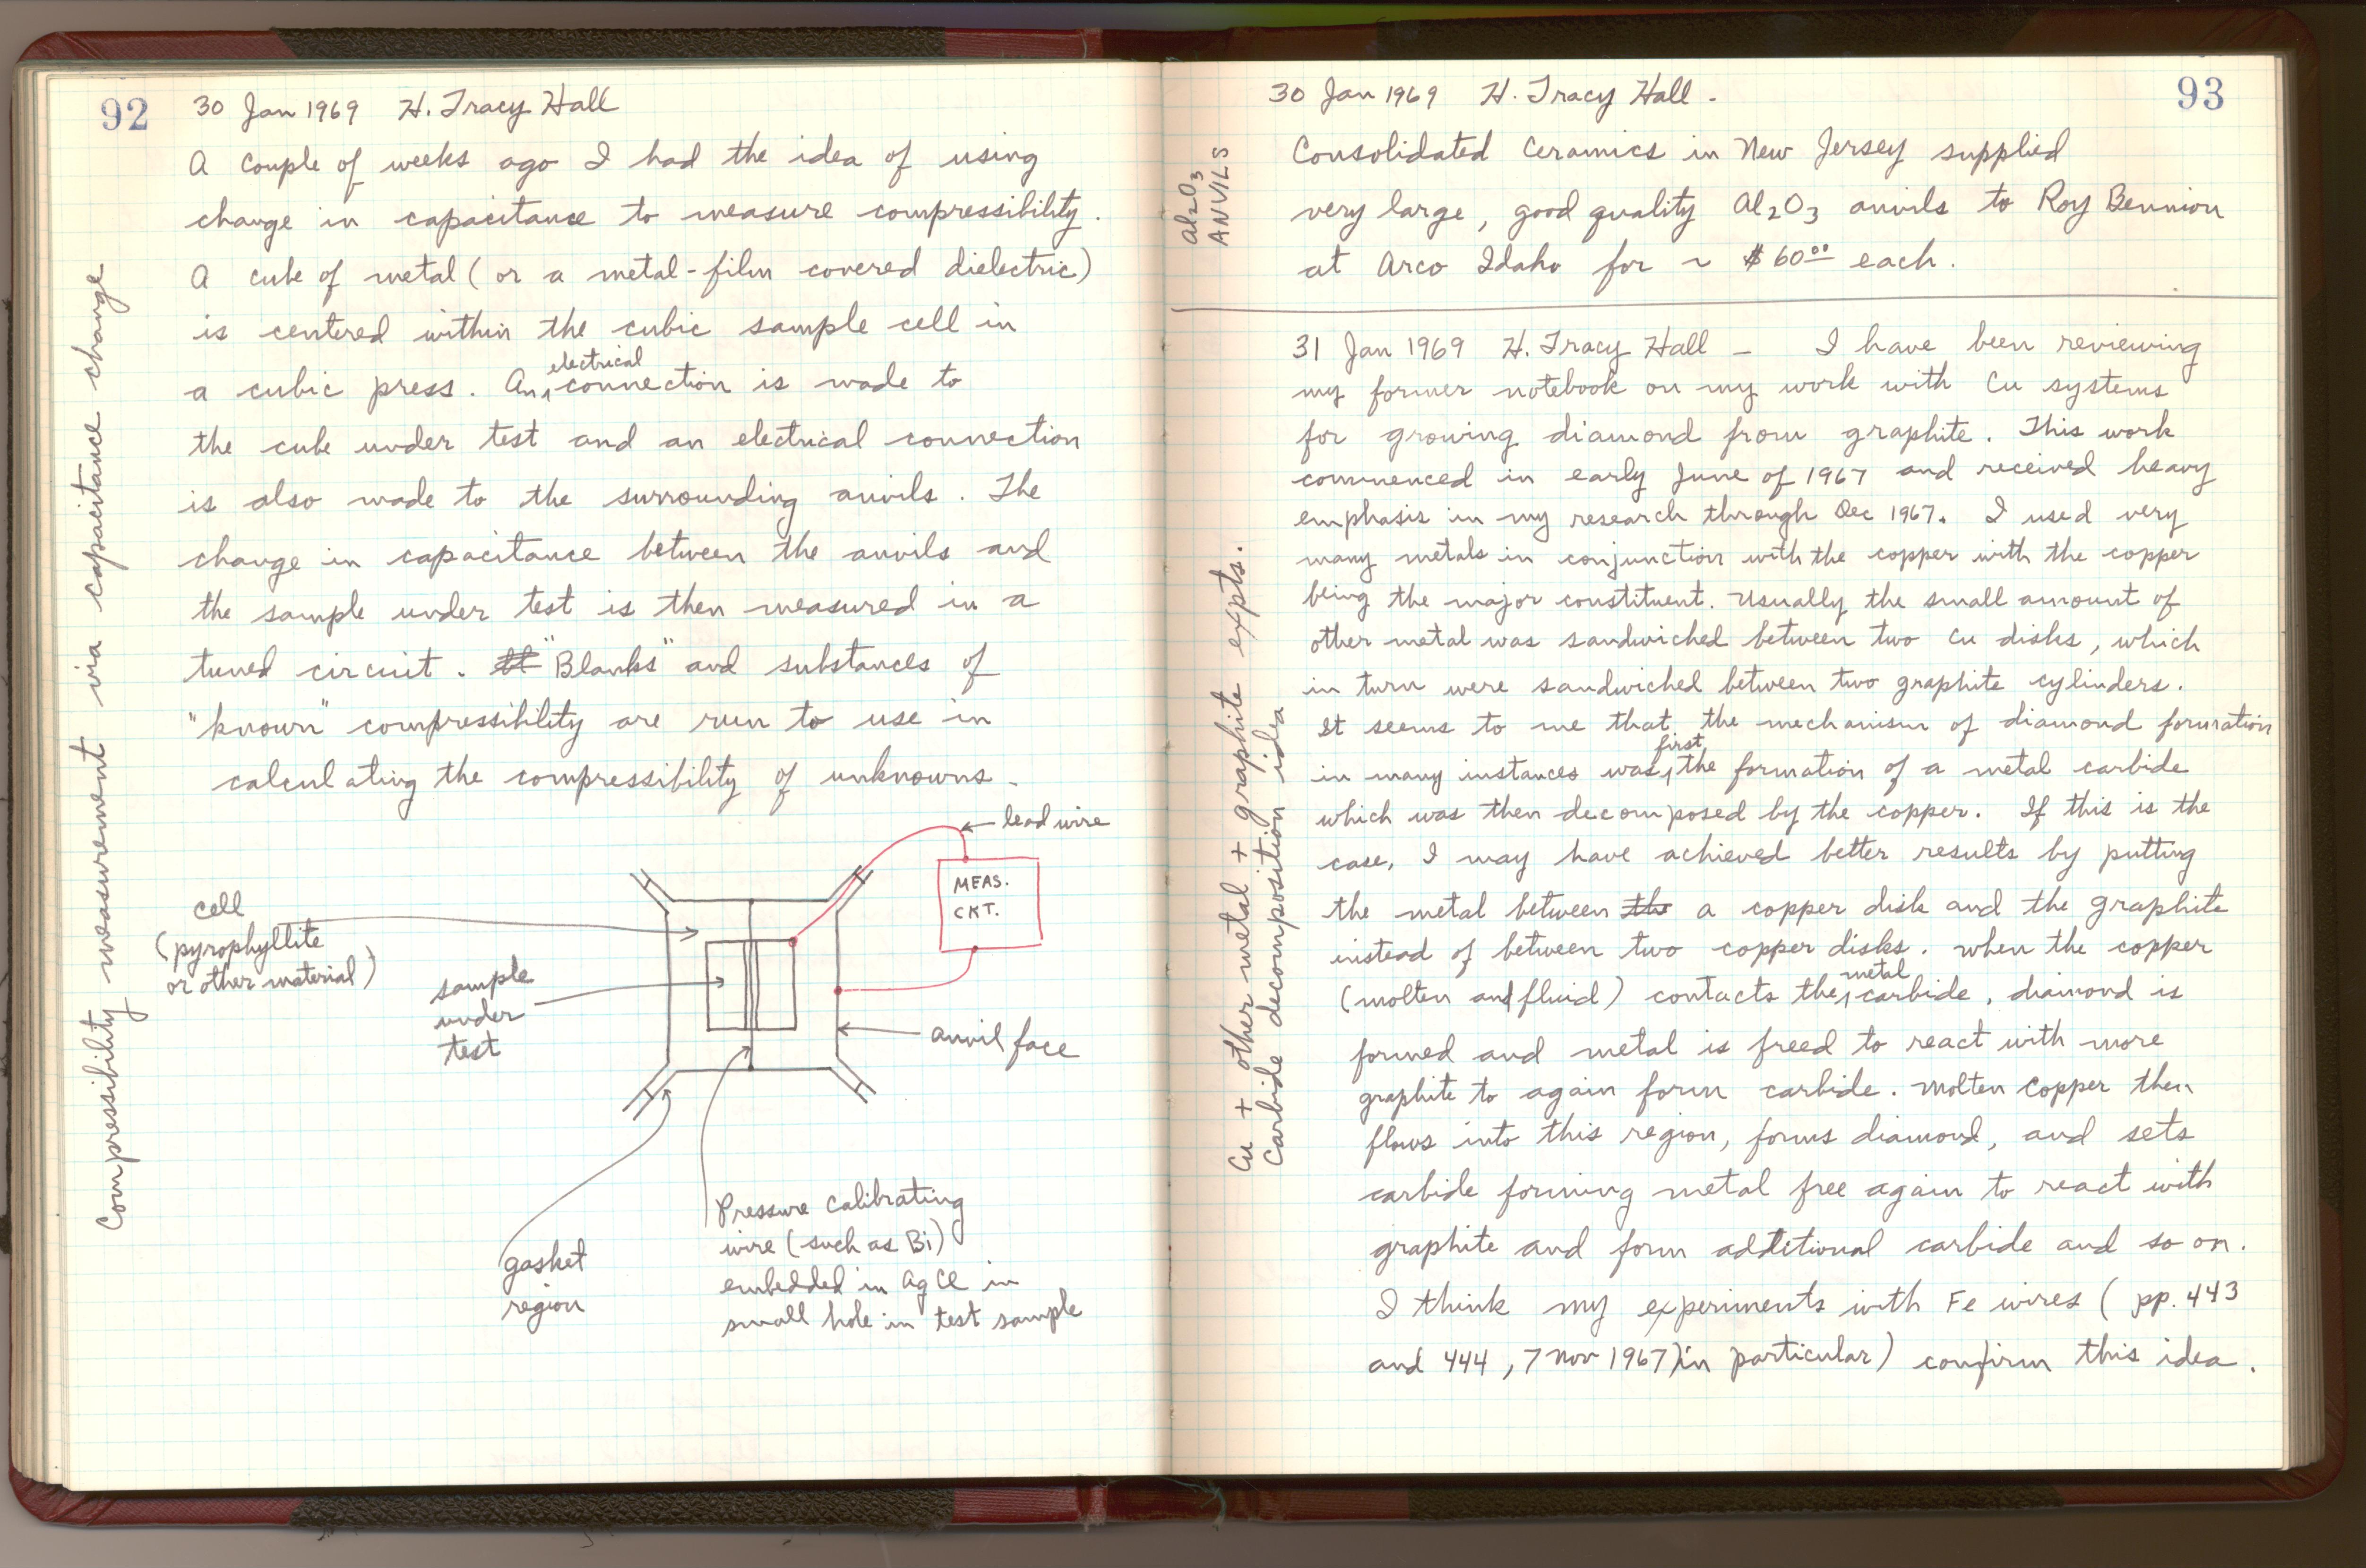 92
30 Jan 1969 H. Tracy Hall
A couple of weeks ago I had the idea of using
change in capacitance to measure compressibility.
A cube of metal (or a metal-film covered dielectric)
is centered within the cubic sample cell in
a cubic press. An electrical connection is made to
the cube under test and an electrical connection
is also made to the surrounding anvils. The
change in capacitance between the anvils and
the sample under test is then measured in a
tuned circuit. "Blanks" and substances of
"known" compressibility are run to use in
calculating the compressibility of unknowns.
Compressibility measurement via capacitance change
lead wire
MEAS.
CKT.
cell
(pyrophyllite
or other material)
sample
under
test
anvil face
gasket
region
Pressure Calibrating
wire (such as Bi)
embedded in AgCl in
small hole in test sample
93
30 Jan 1969 H. Tracy Hall -
Al2O3
ANVILS
Consolidated Ceramics in New Jersey supplied
very large, good quality Al2O3 anvils to Roy Bennion
at Arco Idaho for ~ $60.00 each.
31 Jan 1969 H. Tracy Hall - I have been reviewing
my former notebook on my work with Cu systems
for growing diamond from graphite. This work
commenced in early June of 1967 and received heavy
emphasis in my research through Dec 1967. I used very
many metals in conjunction with the copper with the copper
being the major constituent. Usually the small amount of
other metal was sandwiched between two Cu disks, which
in turn were sandwiched between two graphite cylinders.
It seems to me that the mechanism of diamond formation
in many instances was first the formation of a metal carbide
which was then decomposed by the copper. If this is the
case, I may have achieved better results by putting
the metal between the a copper disk and the graphite
instead of between two copper disks. When the copper
(molten and fluid) contacts the metal carbide, diamond is
formed and metal is freed to react with more
graphite to again form carbide. Molten Copper then
flows into this region, forms diamond, and sets
carbide forming metal free again to react with
graphite and form additional carbide and so on.
I think my experiments with Fe wires (pp. 443
and 444, 7 Nov 1967) in particular) confirm this idea.
Cu + other metal + graphite expts.
Carbide decomposition idea